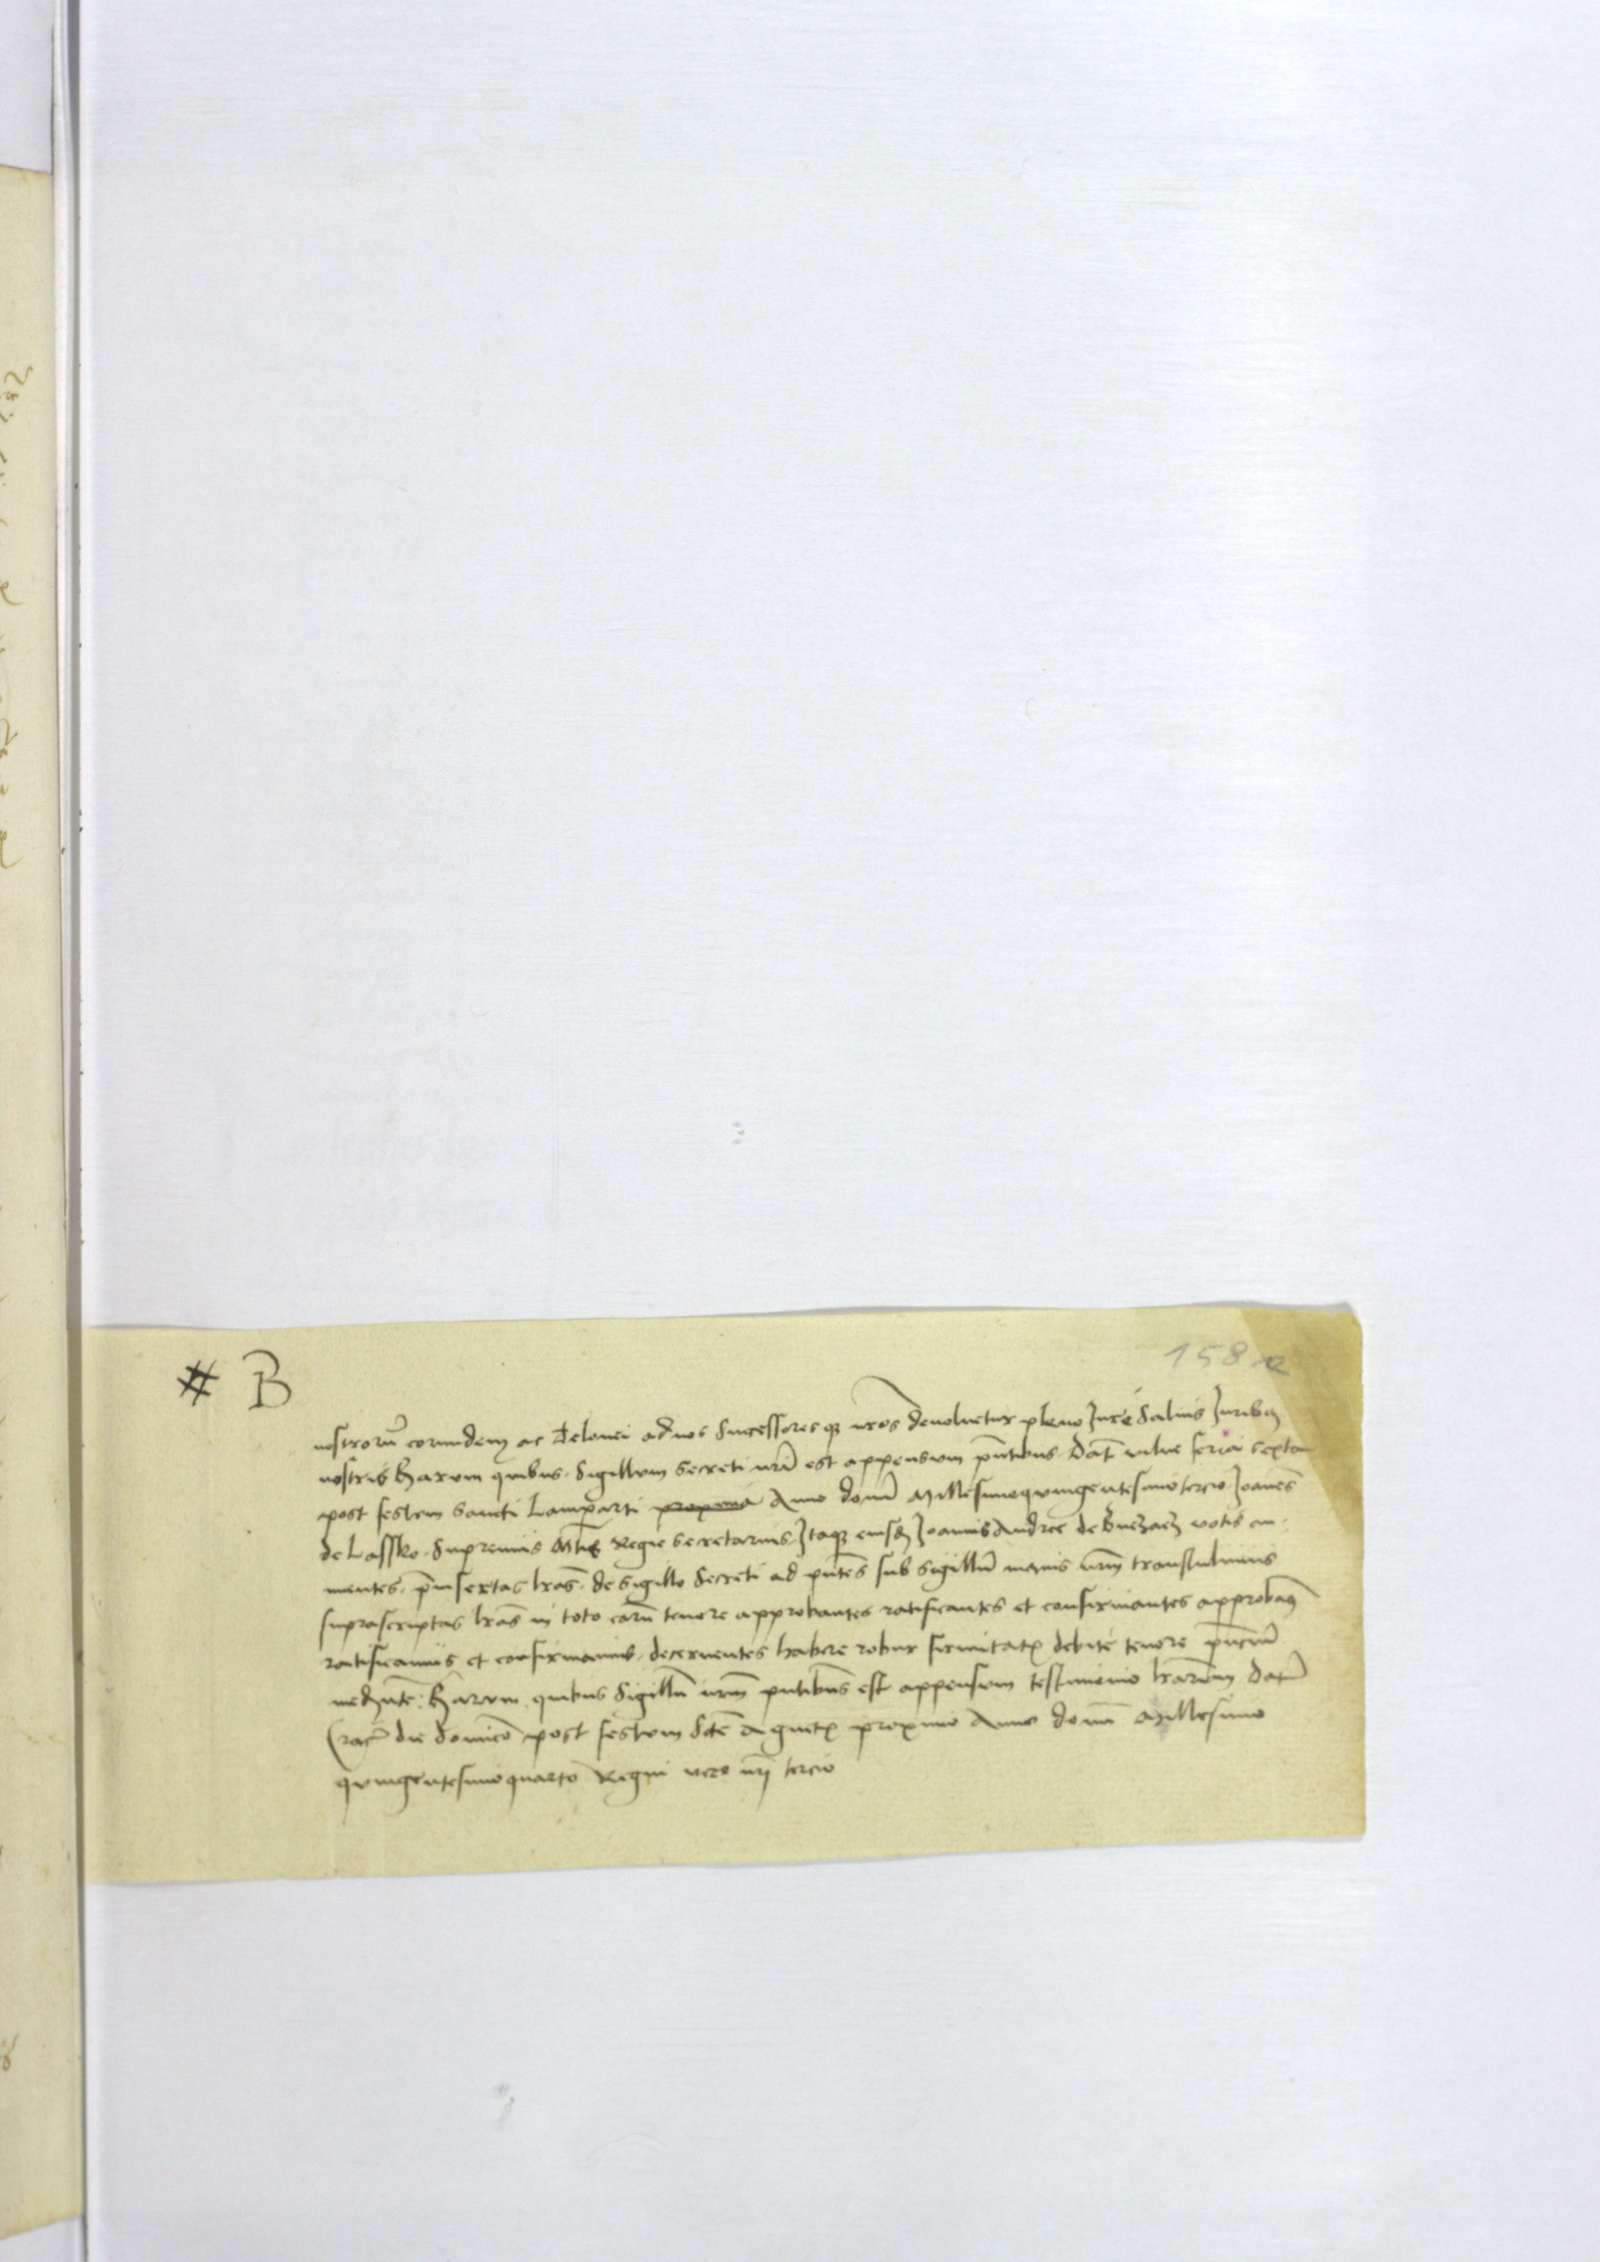 158a
# B
nostroru eorundem ac Telonei ad nos Successoresq nros devolvetur pleno Jure Salvis Juribus
nostris Harum quibus Sigillum Secreti nrm est appensum pntibus Dat vilne feria sexta
post festum Sancti Lamparti proxima Anno domi Millesimoquingentesimotercio Joannes
de Lassko Supremus Mtis Regie Secretarius Itaq eiusd Joannis Andree de votis an
nuentes preinsertas lras de Sigillo Secreti ad pntes sub Sigillu maius nrm transtulimus
suprascriptas lras in toto earu tenore approbantes ratificantes et confirmantes approbamq
ratificamus et confirmamus decernentes habere robur firmitatis debite tenore pncium
mediante Harum quibus Sigillu nrm pntibus est appensum testimonio lrarum Dat
Crac die dominico post festum Scte Agnetis proximo Anno domi Millesimo
quingentesimoquarto Regni vero nri tercio